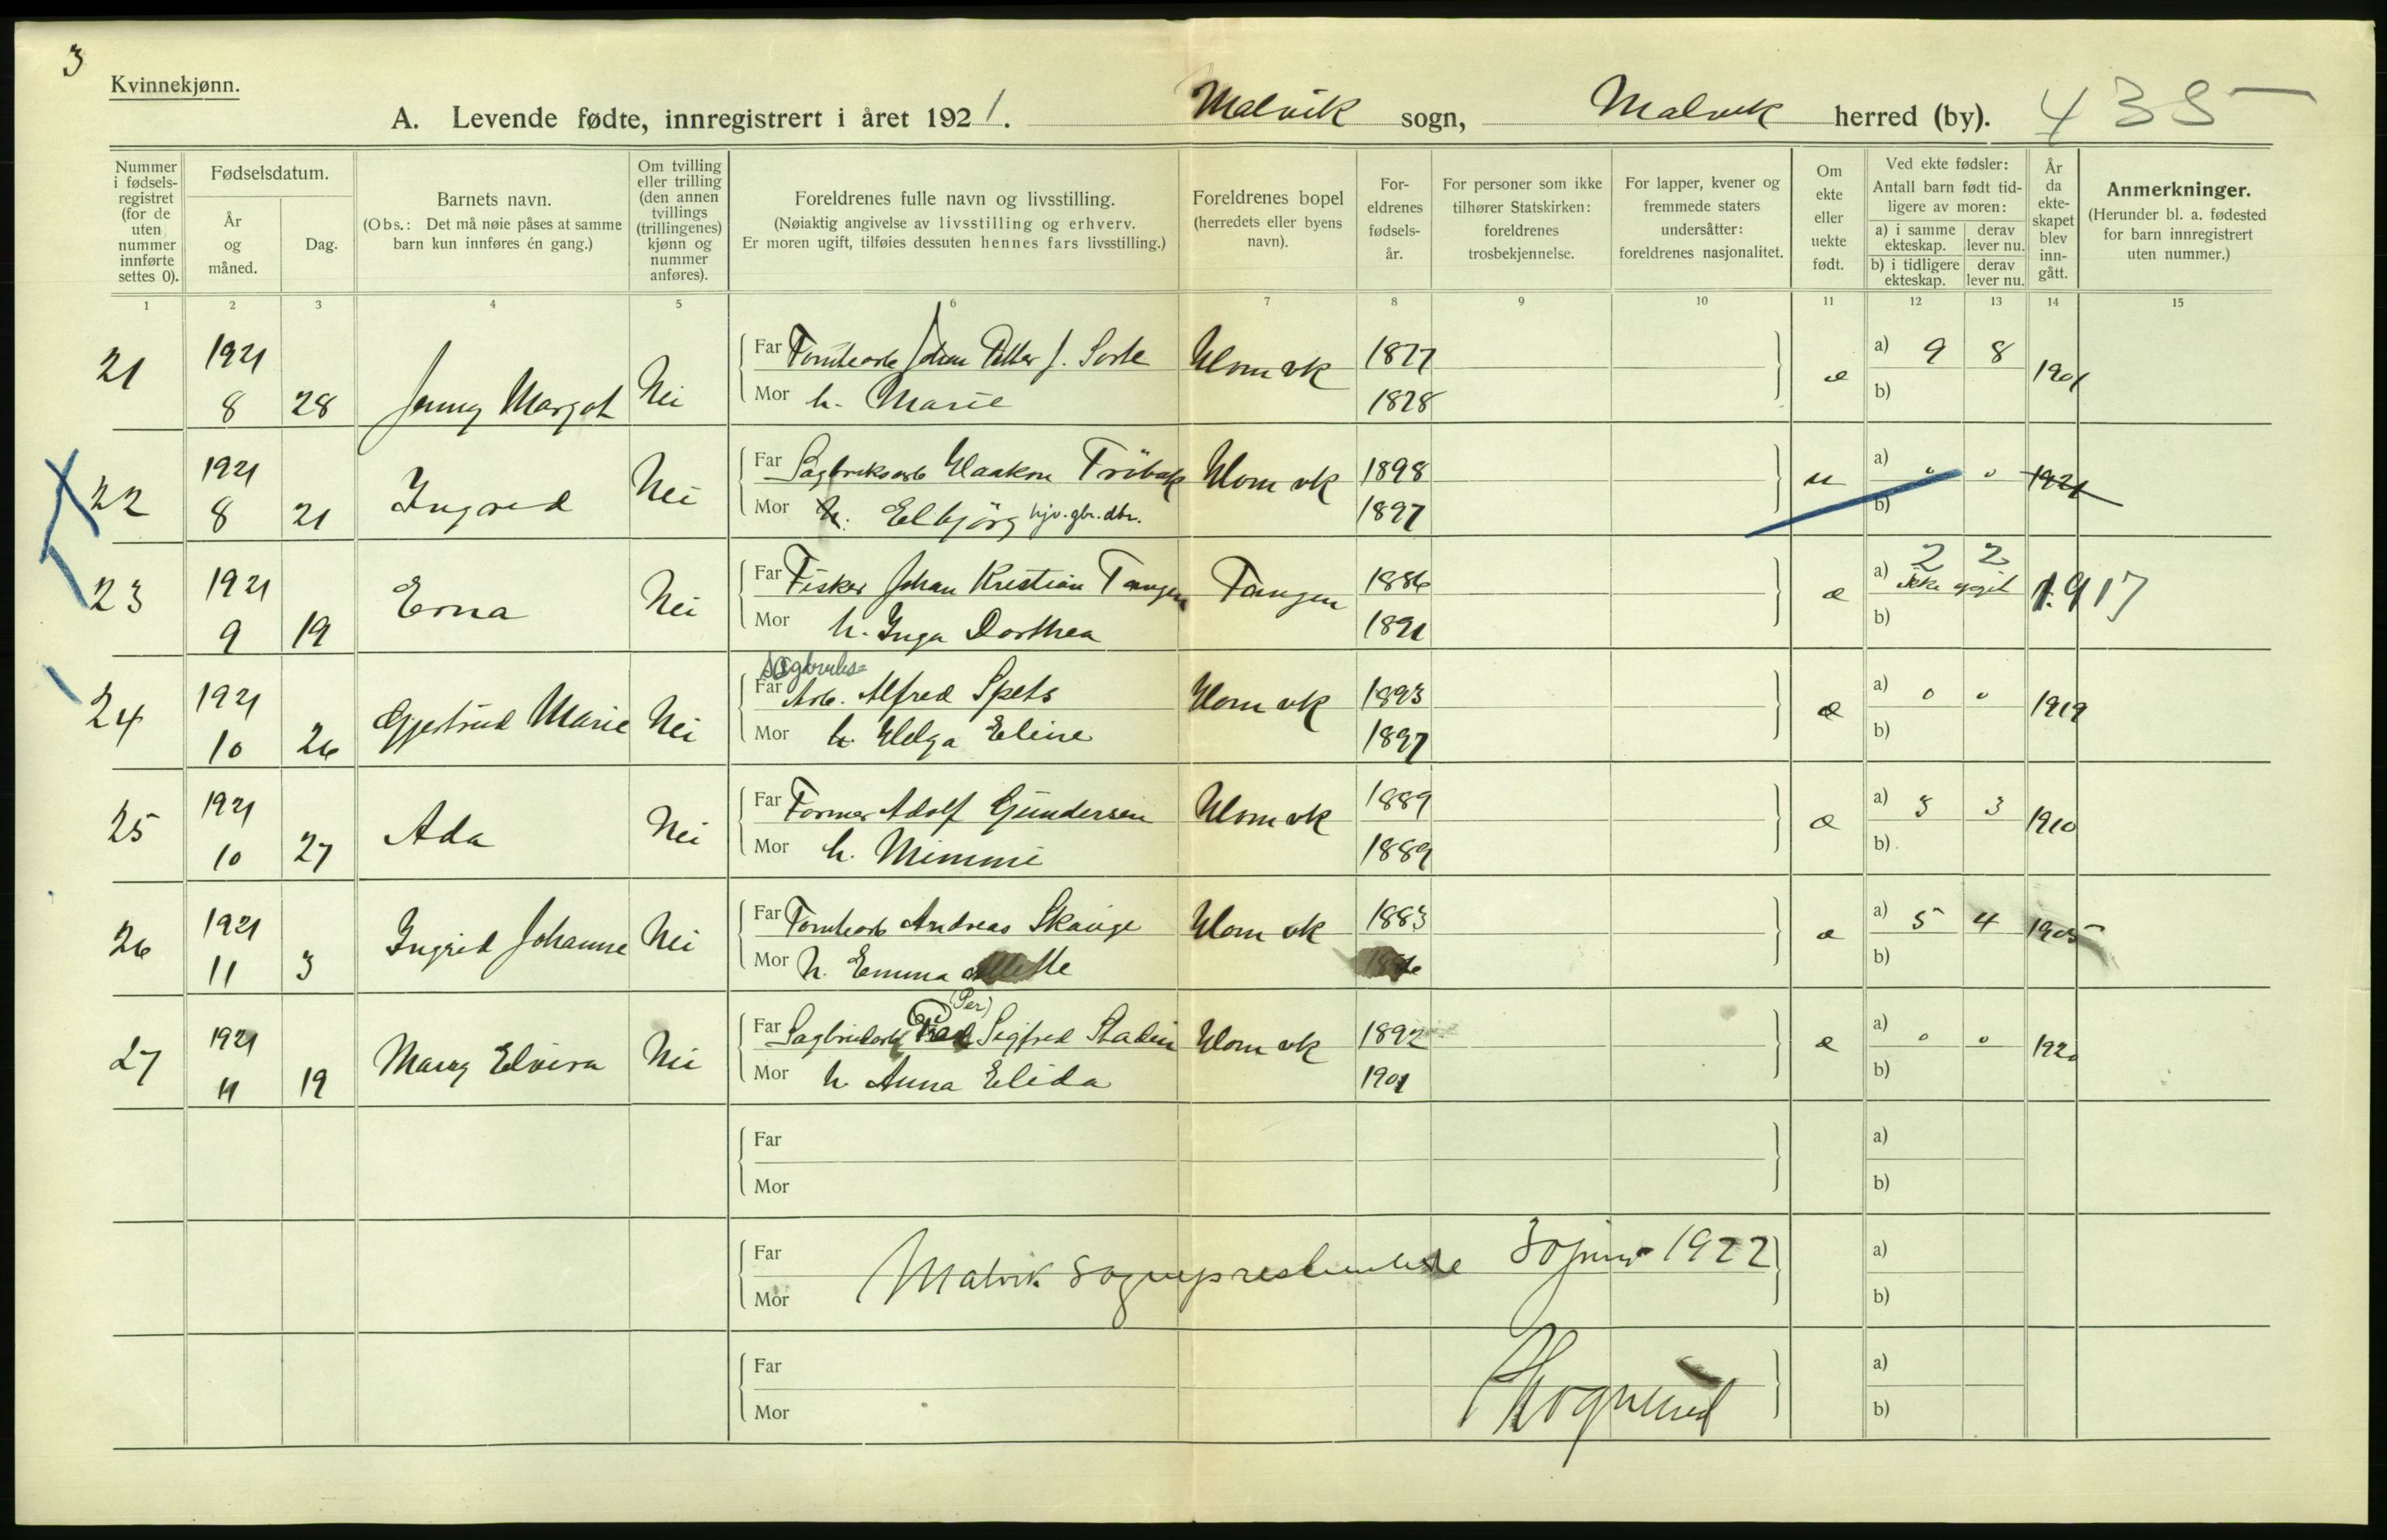 3
Kvinnekjønn.
A. Levende fødte, innregistrert i året 1921. Malvik sogn, Malvik herred (by). 435
Nummer i fødsels-registret (for de uten nummer innførte settes 0).
Fødselsdatum.
År og måned.
Dag.
Barnets navn.
(Obs.: Det må nøie påses at samme barn kun innføres én gang.)
Om tvilling eller trilling (den annen tvillings (trillingenes) kjønn og nummer anføres).
Foreldrenes fulle navn og livsstilling.
(Nøiaktig angivelse av livsstilling og erhverv.
Er moren ugift, tilføies dessuten hennes fars livsstilling.)
Foreldrenes bopel
(herredets eller byens navn).
For-eldrenes fødsels-år.
For personer som ikke tilhører Statskirken: foreldrenes trosbekjennelse.
For lapper, kvener og fremmede staters undersåtter: foreldrenes nasjonalitet.
Om ekte eller uekte født.
Ved ekte fødsler:
Antall barn født tid-ligere av moren:
a) i samme ekteskap.
derav lever nu.
b) i tidligere ekteskap.
derav lever nu.
År da ekte-skapet blev inn-gått.
Anmerkninger.
(Herunder bl. a. fødested for barn innregistrert uten nummer.)
1 2 3 4 5 6 7 8 9 10 11 12 13 14 15
21 1921 8 28 Jenny Margot Nei
Far Johan Petter J. 1877
Mor h. Marie 1878
æ a) 9 8 1901
b)
22 1921 8 21 Ingrid Nei
Far Haakon 1898
Mor h. Elbjörg hjv. gbr. dtr. 1897
u a) 0 0 1921
b)
23 1921 9 19 Erna Nei
Far Fisker Johan Kristian Tangen Tangen 1886
Mor h. Inga Dorthea 1891
æ a) 2 2 ikke opgit 1917
b)
24 1921 10 26 Gjertrud Marie Nei
Sagbruks
Far Arb. Alfred Spets 1893
Mor h. Helga Eline 1897
æ a) 0 0 1919
b)
25 1921 10 27 Ada Nei
Far Former Adolf Gundersen 1889
Mor h. Mimmi 1889
æ a) 3 3 1910
b)
26 1921 11 3 Ingrid Johanne Nei
Far Andreas Skauge 1883
Mor h. Emma
æ a) 5 4 1905
b)
27 1921 11 19 Mary Elvira Nei
(Per)
Far Sigfred 1892
Mor h. Anna Elida 1901
æ a) 0 0 1920
b)
Far a)
Mor b)
Far a)
Malvik sogneprestembede 30 juni 1922
Mor b)
Far a)
Mor b)